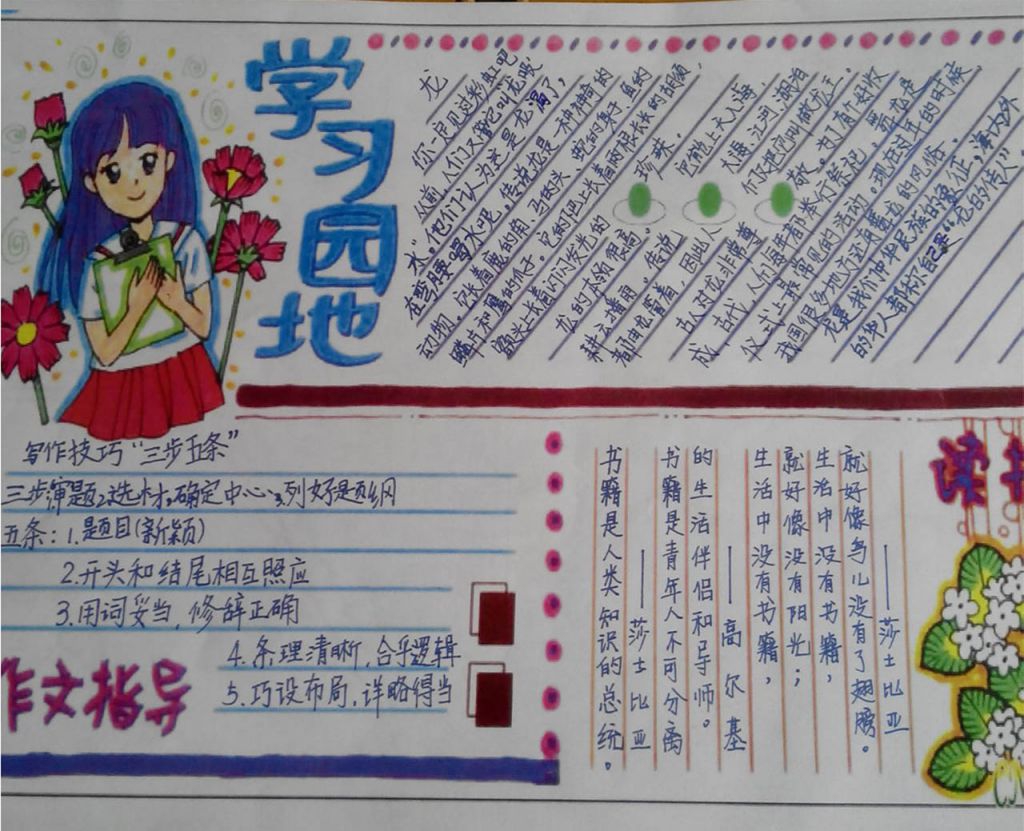 学习园地
龙
你一定见过彩虹吧
从前,人们又管它叫“龙吸
水”。他们认为这是龙渴了,
在弯腰喝水呢。传说龙是一种神奇的
动物。它长着鹿的角、马的头、蛇的身子、鱼的
鳞片和鹰的爪子。它的下巴上长着两根长长的胡须,
额头上长着闪闪发光的
珍珠。
龙的本领很高。传说
它能上天入海
耕云播雨。传说
大地、江河、湖泊
都由龙管着,因此人
们又把它叫做龙王。
古人对龙非常尊
敬。为了有好收
成,古代,人们每年都举行祭祀。
仪式上最常见的活动。现在过年的时候
我国很多地方还有舞龙的风俗。
龙是我们中华民族的象征,海内外
的华人都称自己是“龙的传人”。
写作技巧“三步五条”
三步:1.审题2.选材,确定中心3.列好提纲
五条:1.题目(新颖)
2.开头和结尾相互照应
3.用词妥当,修辞正确
4.条理清晰,合乎逻辑
5.巧设布局,详略得当
作文指导
书籍是人类知识的总统。
——莎士比亚
书籍是青年人不可分离
的生活伴侣和导师。
——高尔基
生活中没有书籍,
就好像没有阳光;
生活中没有书籍,
就好像鸟儿没有了翅膀。
——莎士比亚
读书